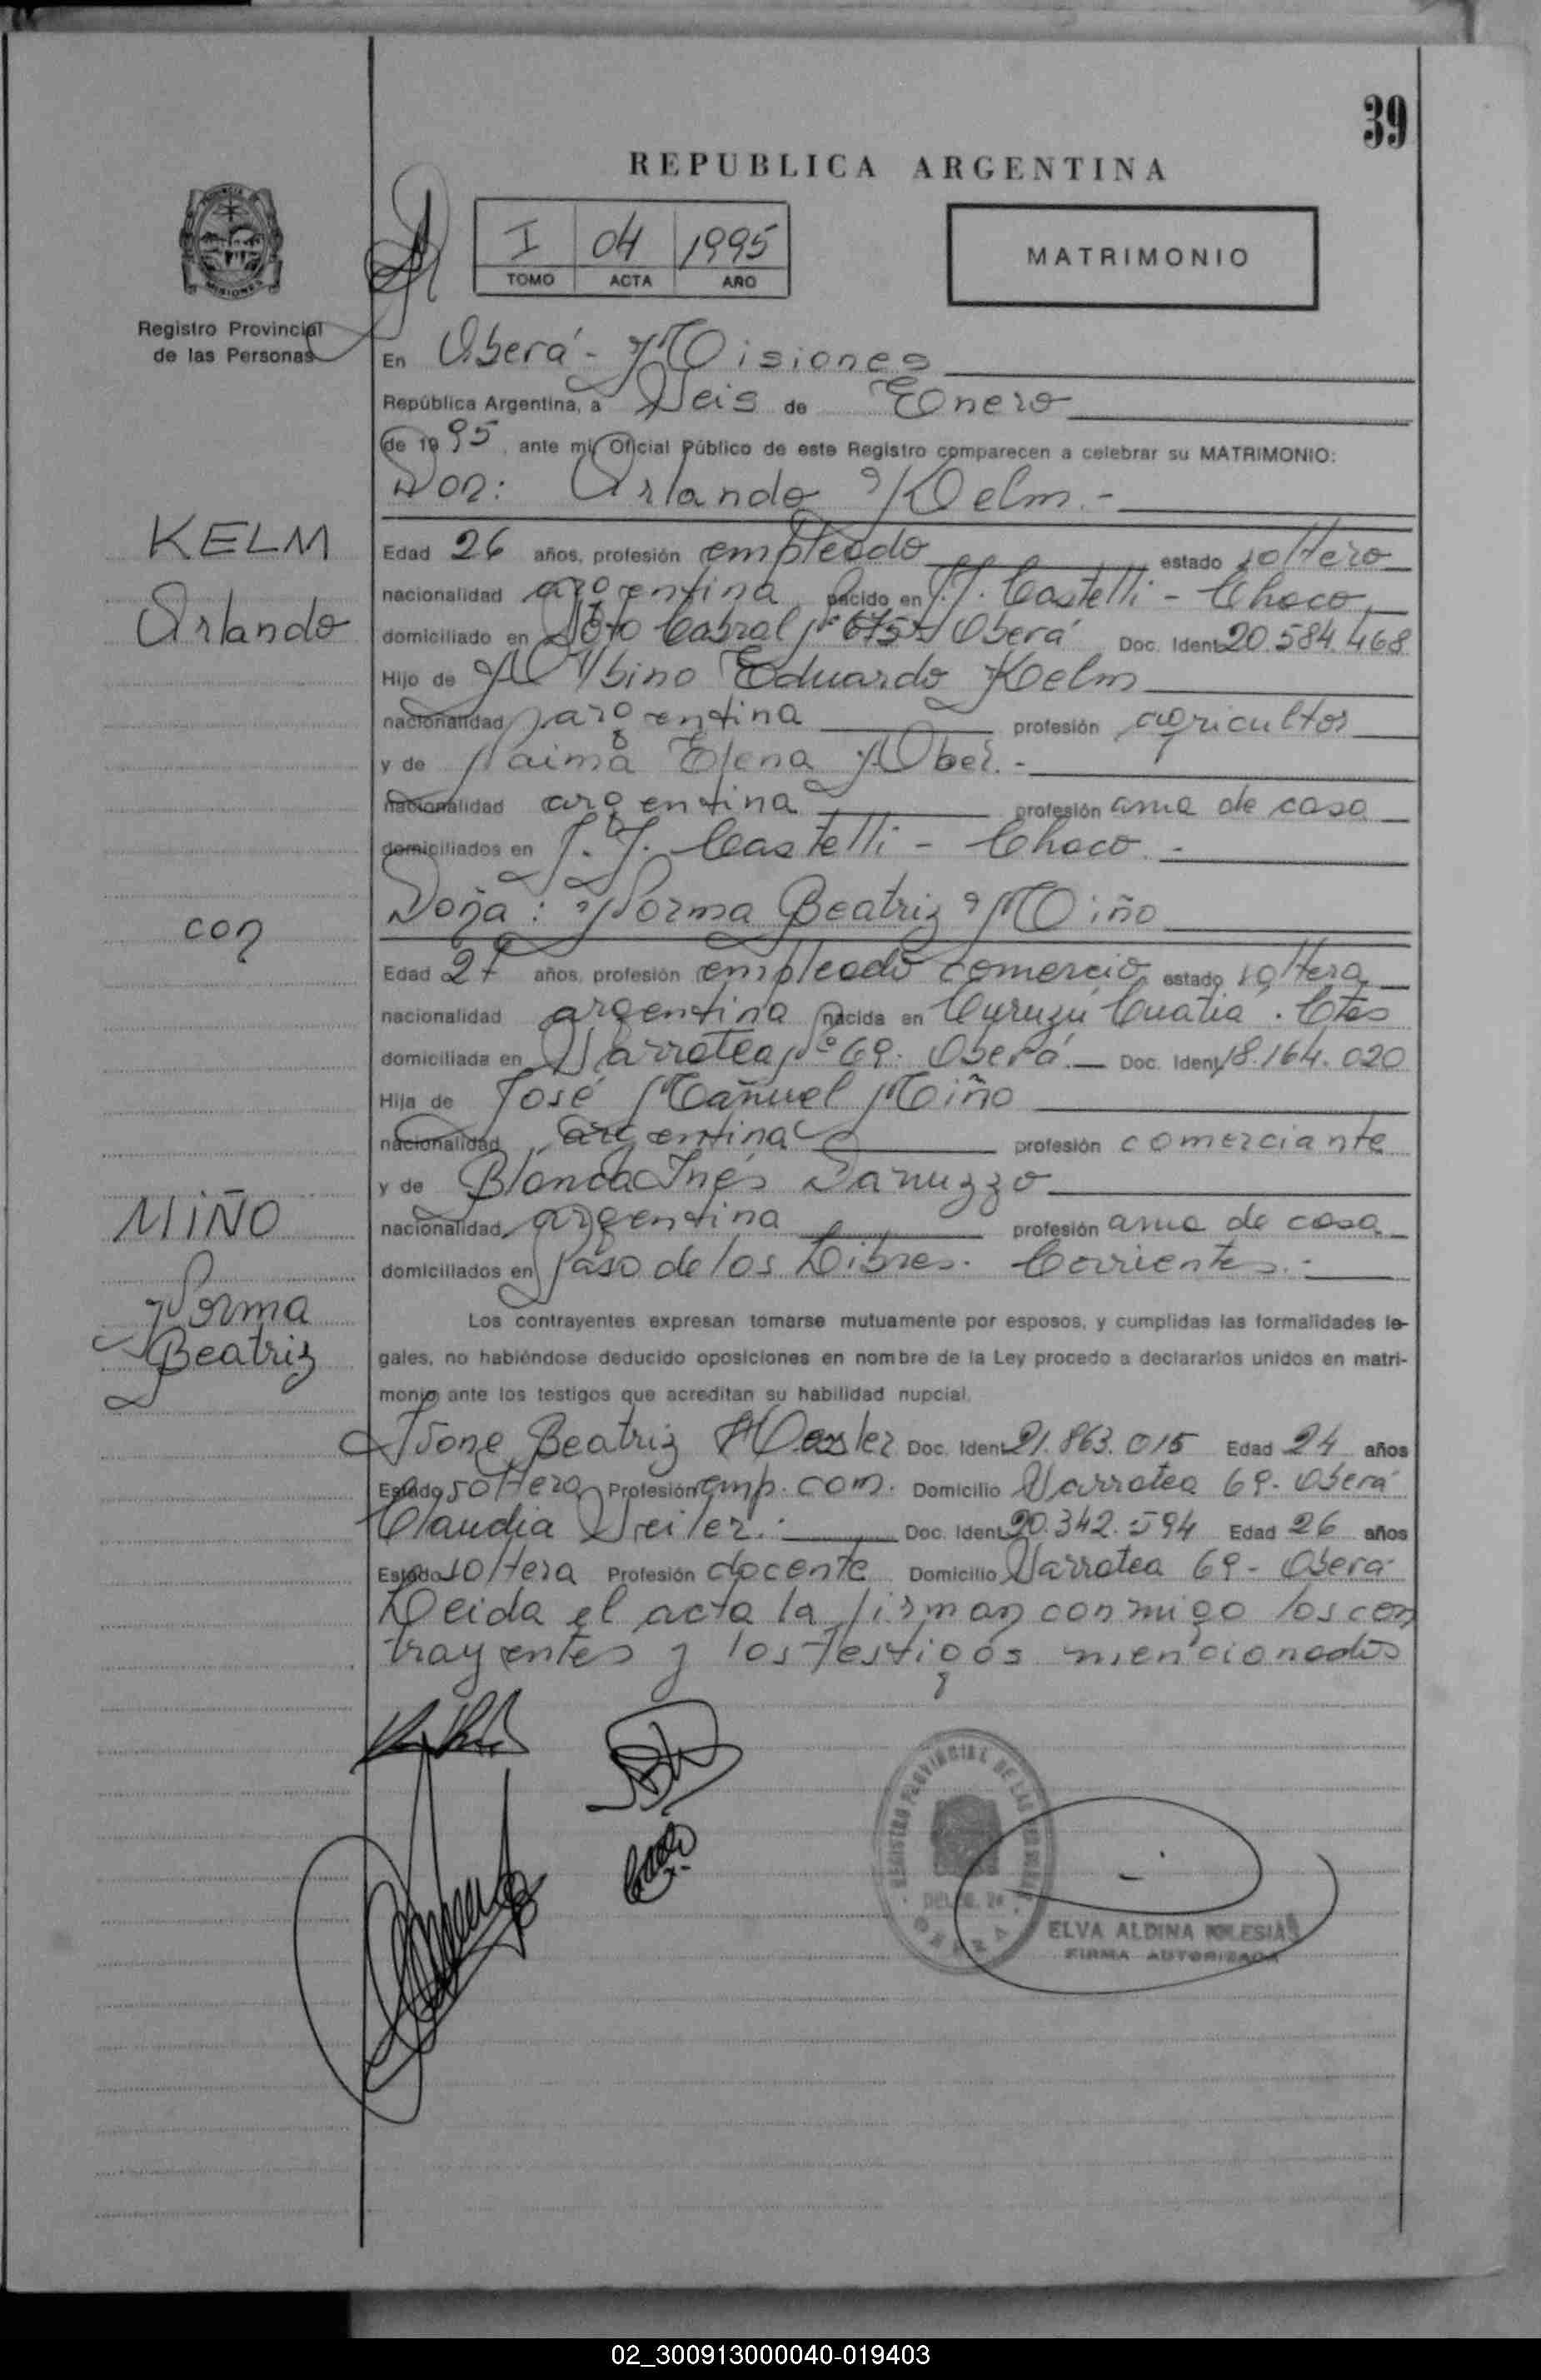 39
REPUBLICA ARGENTINA
I 04 1995
TOMO ACTA AÑO
MATRIMONIO
Registro Provincial
de las Personas
En Oberá - Misiones
República Argentina, a Seis de Enero
de 19 95, ante mi, Oficial Público de este Registro comparecen a celebrar su MATRIMONIO:
Don: Orlando Kelm.-
KELM
Orlando
Edad 26 años, profesión empleado estado soltero
nacionalidad argentina nacido en J.J. Castelli - Chaco
domiciliado en Sgto Cabral Nº 675 Oberá Doc. Ident. 20.584.468
Hijo de Albino Eduardo Kelm
nacionalidad argentina profesión agricultor
y de Naima Elena
nacionalidad argentina profesión ama de casa
domiciliados en J.J. Castelli - Chaco.-
con
Doña: Norma Beatriz Miño
Edad 27 años, profesión empleado comercio estado soltera
nacionalidad argentina nacida en Curuzú Cuatiá. Ctes
domiciliada en Sarratea Nº 69. Oberá.- Doc. Ident. 18.164.020
Hija de José Mañuel Miño
nacionalidad argentina profesión comerciante
y de Blanca Inés
nacionalidad argentina profesión ama de casa
domiciliados en Paso de los Libres. Corrientes.-
MIÑO
Norma
Beatriz
Los contrayentes expresan tomarse mutuamente por esposos, y cumplidas las formalidades le-
gales, no habiéndose deducido oposiciones en nombre de la Ley procedo a declararlos unidos en matri-
monio ante los testigos que acreditan su habilidad nupcial.
Ivone Beatriz Doc. Ident. 21.863.015 Edad 24 años
Estado soltera Profesión emp. com. Domicilio Sarratea 69 - Oberá
Claudia Doc. Ident. 20.342.594 Edad 26 años
Estado soltera Profesión docente Domicilio Sarratea 69 - Oberá
Leida el acta la firman conmigo los con
trayentes y los testigos mencionados
REGISTRO PROVINCIAL DE LAS PERSONAS
DELEG. 2ª
OBERA
ELVA ALDINA IGLESIAS
FIRMA AUTORIZADA
02_300913000040-019403